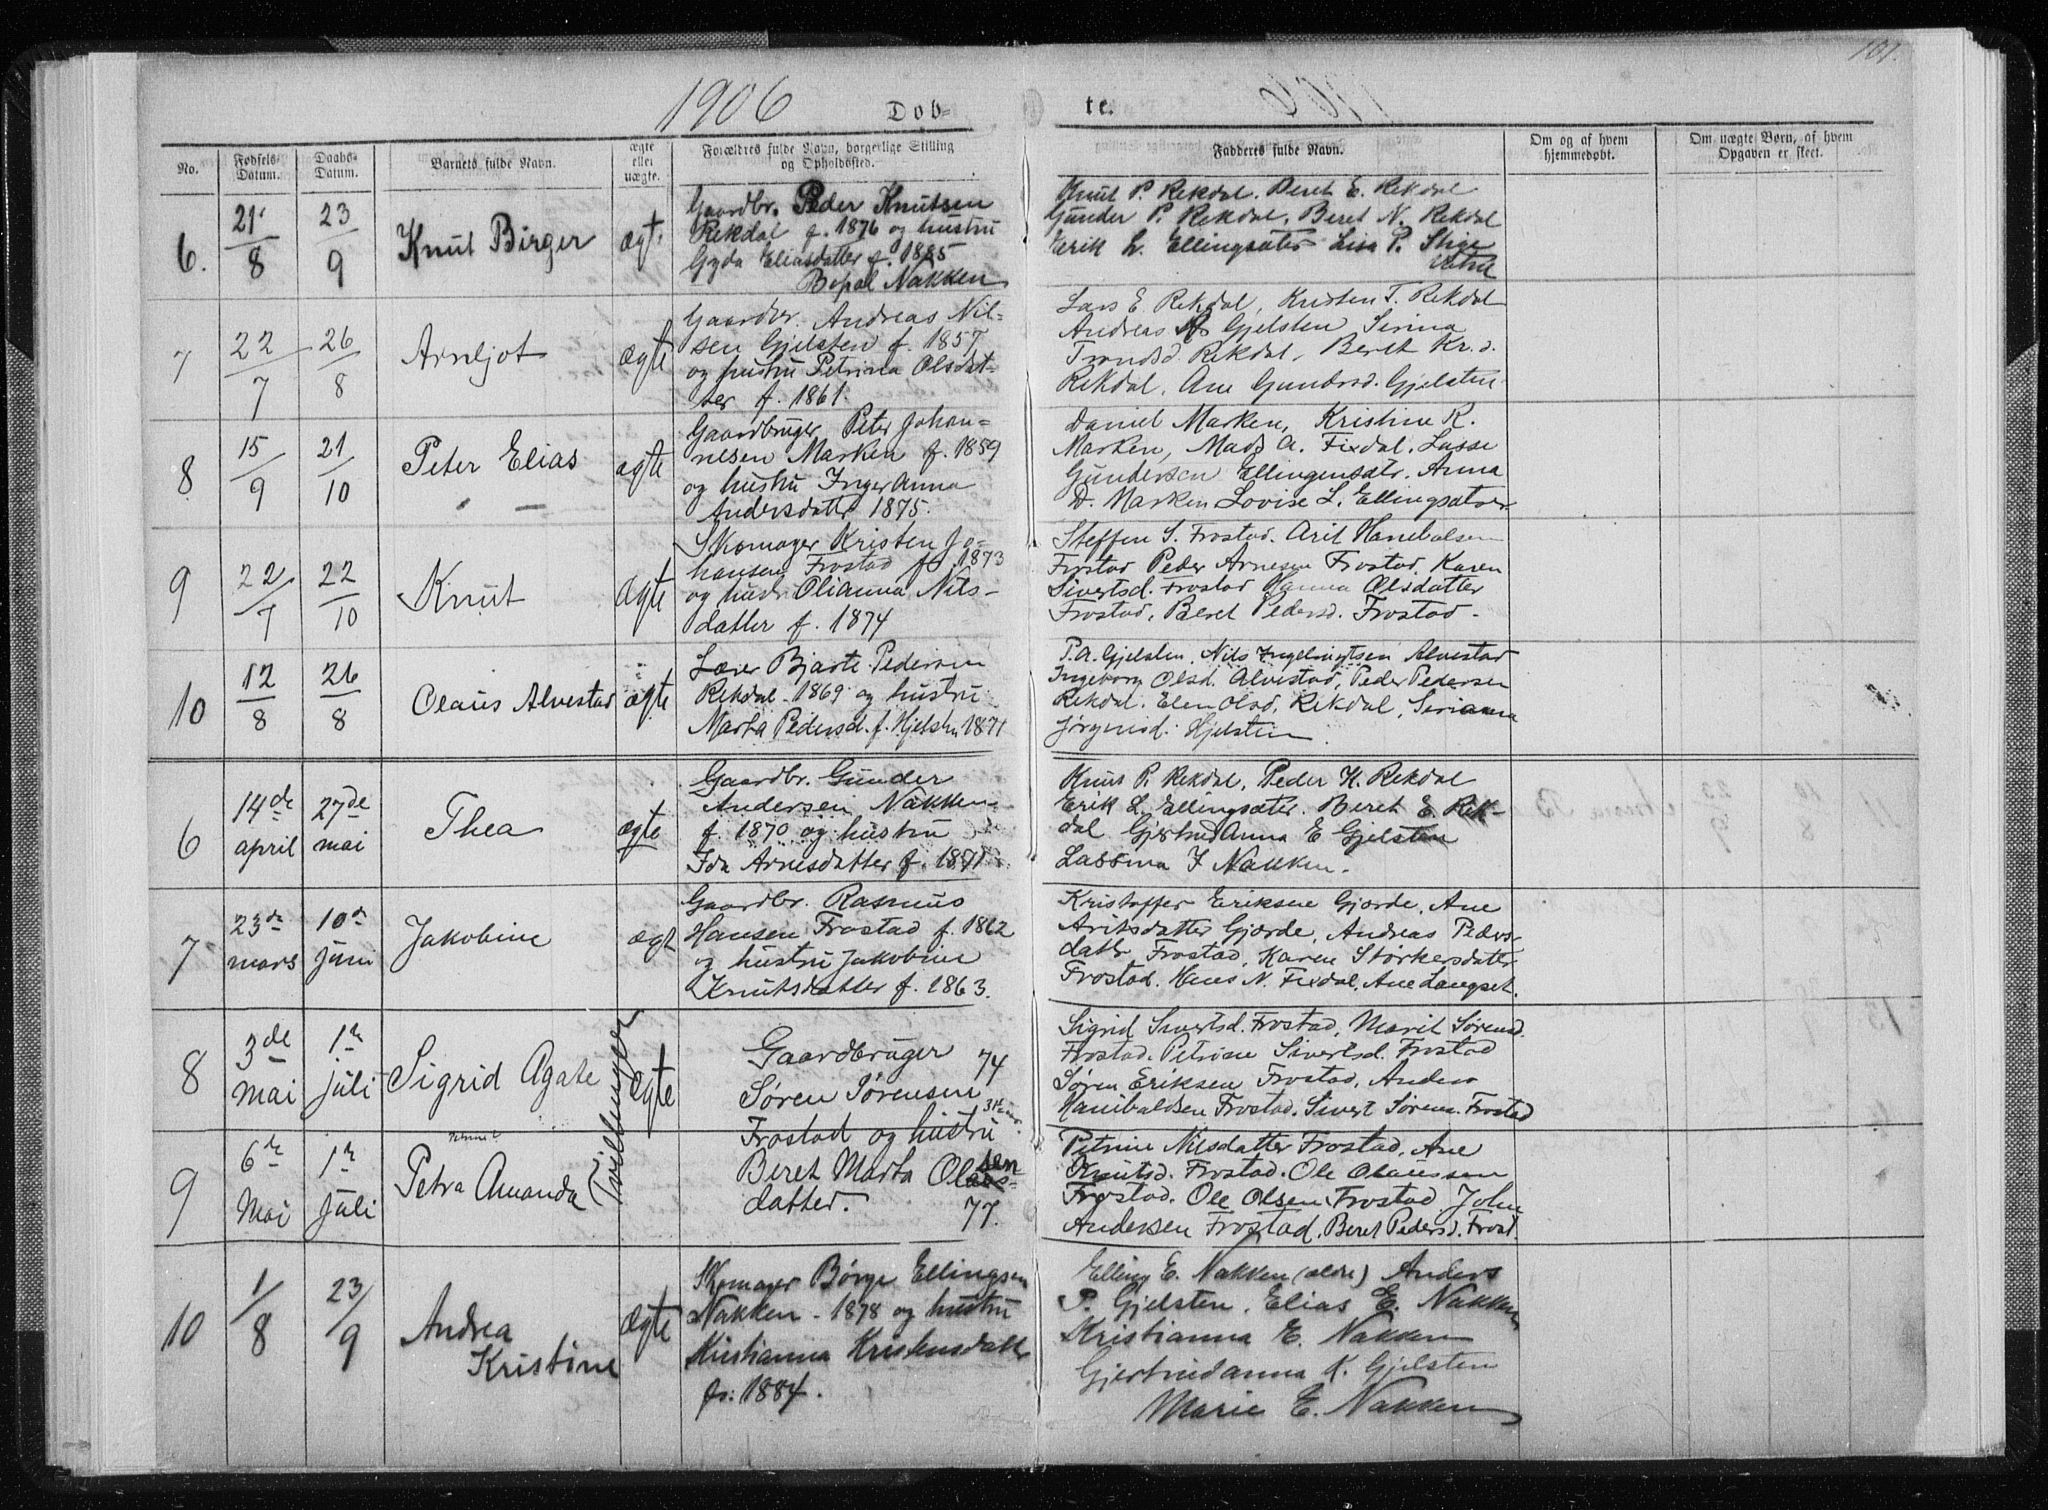 101.
1906
Døb-
te.
No.
Fødsels-
Datum.
Daabs-
Datum.
Barnets fulde Navn.
ægte
eller
uægte.
Forældres fulde Navn, borgerlige Stilling
og Opholdssted.
Fadderes fulde Navn.
Om og af hvem
hjemmedøbt.
Om uægte Børn, af hvem
Opgaven er skeet.
6.
21/8
23/9
Knut Birger
ægt.
Gaardbr. Peder Knutsen
Rekdal f. 1876 og hustru
Gyda Eliasdatter f. 1885
Bopæl Nakken
Knut P. Rekdal. Beret E. Rekdal
Gunder P. Rekdal, Beret N. Rekdal
Erik L. Ellingsæter Lisa P. Stige
7
22/7
26/8
Arnljot
ægte
Gaardbr. Andreas Nil-
sen Gjelsten f. 1857
og hustru Petrina Olsdat-
ter f. 1861.
Lars E Rekdal, Kristen T. Rekdal
Andreas Gjelsten Serina
Trondsd. Rekdal, Beret Kr.d.
Rekdal, Ane Gundersd. Gjelsten
8
15/9
21/10
Peter Elias
ægte
Gaardbruger Peter Johan-
nesen Marken f. 1859
og hustru Inger Anna
Andersdatter 1875.
Daniel Marken, Kristine R.
Marken, Mads A. Fixdal, Lasse
Gundersen Ellingensætr. Anna
D. Marken Lovise L. Ellingsæter
9
22/7
22/10
Knut
ægte
Skomager Kristen Jo-
hansen Frostad f. 1873
og hustr Olianna Nils-
datter f. 1874
Steffen S. Frostad. Arit Hanibalsen
Frostad Peder Arnesen Frostad. Karen
Sivertsd. Frostad Hanna Olsdatter
Frostad, Beret Pedersd. Frostad.
10
12/8
26/8
Olaus Alvestad
ægte
Lærer Bjarte Pedersen
Rekdal 1869 og hustru
Marta Pedersd. f. Hjelsten 1871
P.A. Gjelsten. Nils Ingebrigtsen Alvestad
Ingeborg Olsd. Alvestad, Peder Pedersen
Rekdal. Elen Olsd. Rekdal, Serianna
Jørgensd. Hjelsten
6
14de
april
27de
mai
Thea
ægte
Gaardbr. Gunder
Andersen Nakken
f. 1870 og hustru
Ida Arnesdatter f. 1871
Knut P. Rekdal, Peder K. Rekdal
Erik L. Ellingsæter. Beret E. Rek-
dal Gjertrudanna E Gjelsten
Lassina J Nakken.
7
23de
mars
10de
juni
Jakobine
ægt
Gaardbr. Rasmus
Hansen Frostad f. 1862
og hustru Jakobine
Knutsdatter f. 1863.
Kristoffer Eriksen Gjørde, Ane
Aritsdatter Gjørde, Andreas Peders-
datter Frostad, Karen Størkersdatter
Frostad. Hans N. Fixdal, Ane Langset.
8
3de
mai
1ste
juli
Sigrid Agate
Tvillinger
ægte
Gaardbruger
Søren Sørensen 74
Frostad og hustru
Beret Marta Olsen
datter. 77.
Sigrid Sivertsd. Frostad, Marit Sørensd.
Frostad. Petrine Sivertsd. Frostad
Søren Eriksen Frostad, Anders
Hanibaldsen Frostad. Sivert Sørens. Frostad
9
6te
Mai
1ste
Juli
Petra Amanda
Petrine Nilsdatter Frostad, Ane
Knutsd. Frostad. Ole Olaussen
Frostad. Ole Olsen Frostad John
Andersen Frostad, Beret Pedersd. Frost.
10
1/8
23/9
Andrea
Kristine
ægte
Skomager Børge Ellingsen
Nakken - 1878 og hustru
Kristianna Kristensdatter
f: 1884.
Elling E. Nakken (ældre) Anders
P. Gjelsten, Elias E. Nakken
Kristianna E. Nakken
Gjertrudanna K. Gjelsten
Marie E. Nakken